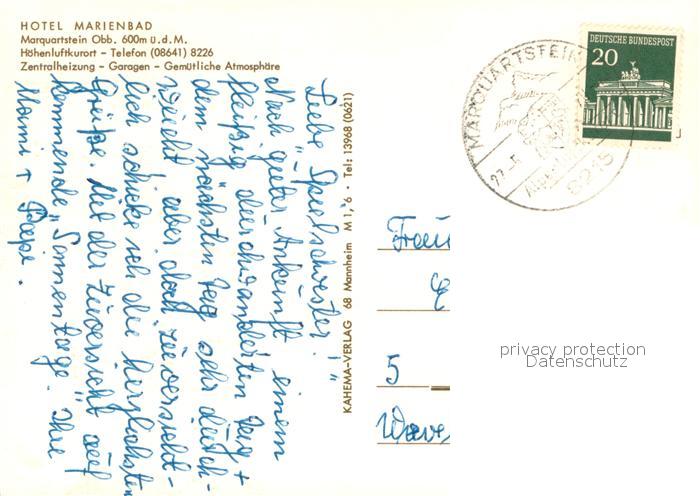 HOTEL MARIENBAD
Marquartstein Obb. 600m ü.d.M.
Höhenluftkurort – Telefon (08641) 8226
Zentralheizung – Garagen – Gemütliche Atmosphäre
Liebe „Spielschwester!"
Nach guter Ankunft einem
fleißig durchwanderten Tag +
dem nächsten Tag sehr durch-
weicht aber doch zuversicht-
lich schicke ich die herzlichsten
Grüße. Mit der Zuversicht auf
kommende „Sonnentage" Ihre
Mami + Papi.
KAHEMA-VERLAG 68 Mannheim M 1, 6 • Tel: 13968 (0621)
MARQUARTSTEIN
8215
DEUTSCHE BUNDESPOST
20
5
privacy protection
Datenschutz